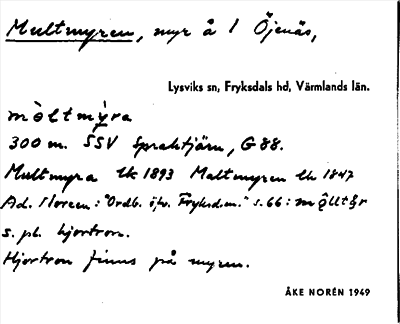 Multmyren, myr å 1 Öjenäs,
Lysviks sn, Fryksdals hd, Värmlands län.
mòltmỳra
300 m. SSV Spraktjärn, G 88.
Multmyra lk 1893 Maltmyren lk 1847
Ad. Noreen: "Ordb. öfv. Fryksd.m." s. 66:
s. pl. hjortron.
Hjortron finns på myren.
ÅKE NORÉN 1949